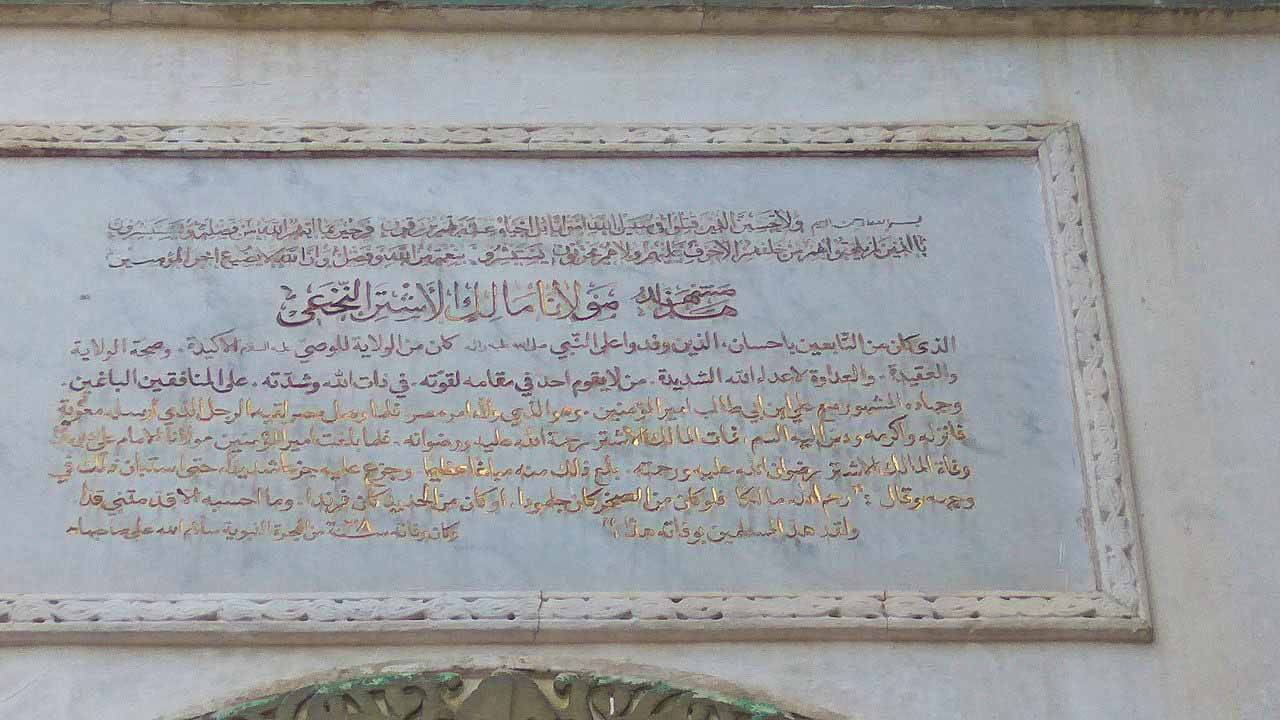 بسم الله الرحمن الرحيم ولا تحسبن الذين قتلوا في سبيل الله امواتا بل احياء عند ربهم يرزقون فرحين بما اتهم الله من فضله ويستبشرون
باالذين لم يلحقوا بهم من خلفهم الا خوف عليهم ولا هم يحزنون يستبشرون بنعمة من الله وفضل وان الله لا يضيع اجر المؤمنين
هذا مشهد مولانا مالك الأشتر النخعي
الذي كان من التابعين بإحسان، الذين وفدوا على النبي كان من الولاية للوصي الأكيدة، وصحة الولاية
والعقيدة، والعداوة لاعداء الله الشديدة، من لا يقوم احد في مقامه لقوته، في ذات الله وشدته، على المنافقين الباغين،
وجهاده المشهور مع علي ابن ابي طالب امير المؤمنين، وهو الذي ولاه امر مصر، فلما وصل مصر لقيه الرجل الذي أرسله معوية
فانزله وأكرمه ودس اليه السم، فمات المالك الاشتر رحمة الله عليه ورضوانه، فلما بلغت امير المؤمنين مولانا الامام علي
وفاة المالك الاشتر رضوان الله عليه ورحمته، بلغ ذلك منه مبلغا عظيما وجزع عليه جزعا شديدا، حتى استبان ذلك في
وجهه وقال: "رحم الله مالكا فلو كان من الصخر كان جلمودا، او كان من الحديد كان فرندا، وما احسبه الا قد متني قدا
ولقد هد المسلمين بوفاته هدا" وكان وفاته سنة ٣٨ من الهجرة النبوية سلام الله على صاحبها